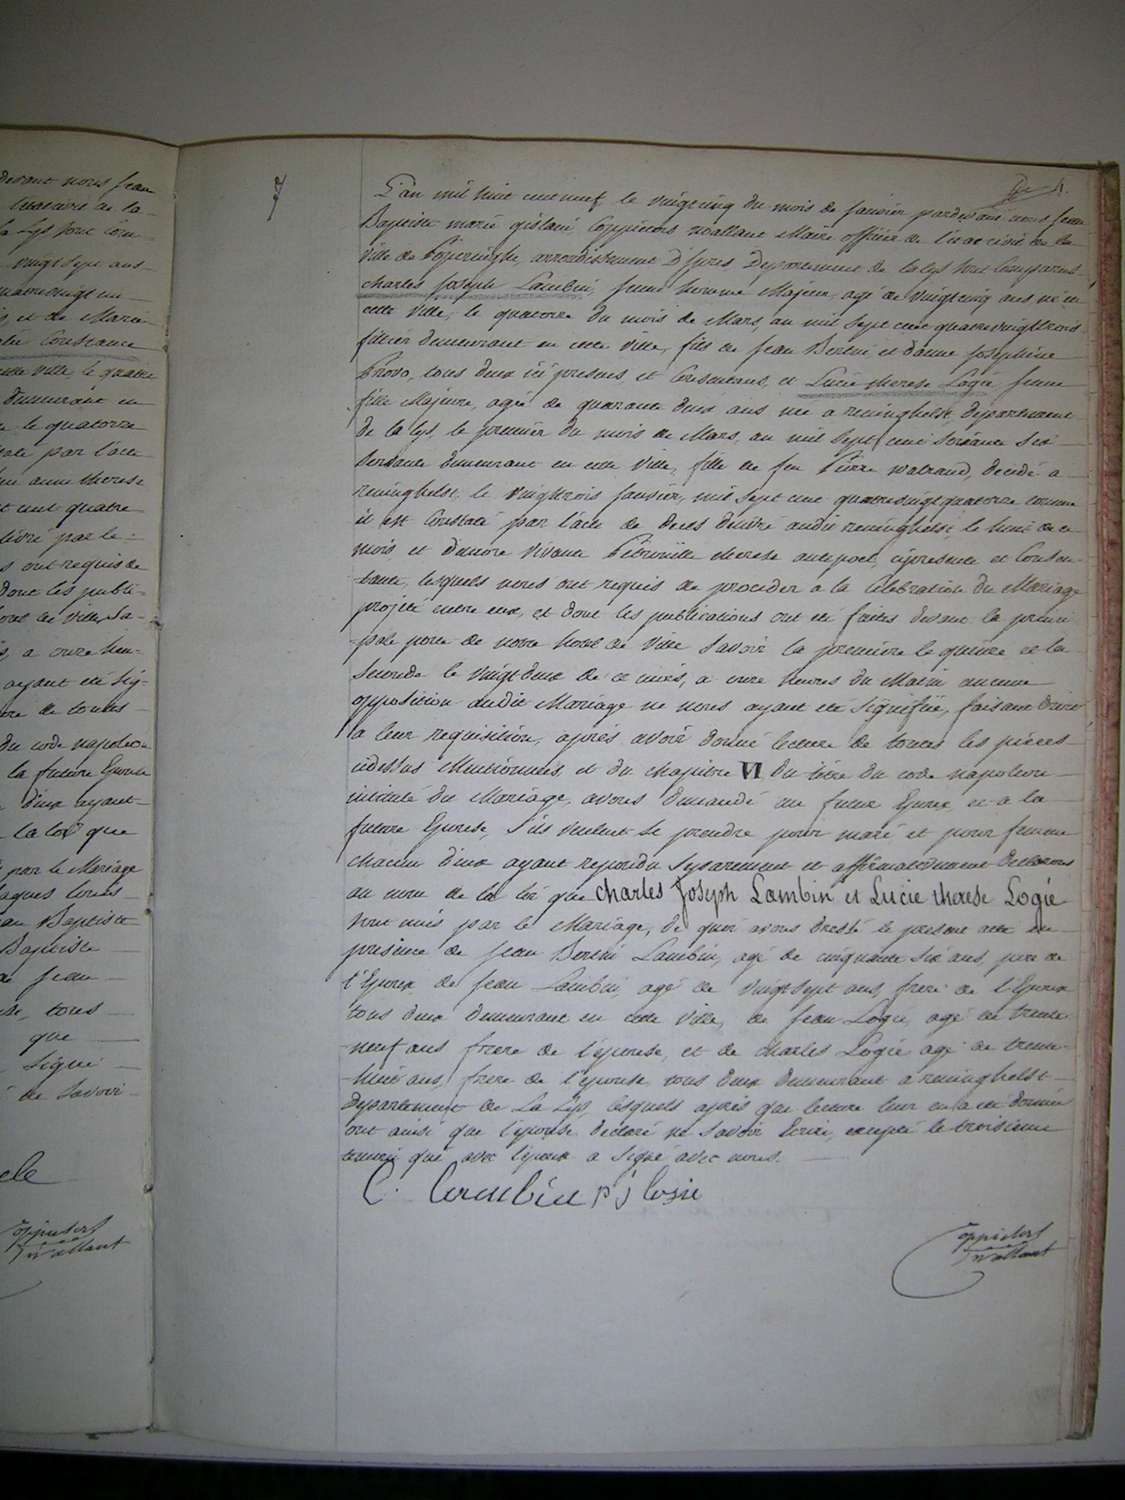 devant nous Jean
vingt sept ans
et de Marie
Constance
cette ville, le quatre
demeurant en
le quatorze
par l'acte
anne therese
cent quatre
livré par le
ont requis de
dont les publi-
a onze heu-
ayant été sig-
de toutes
du code napoleon
la future Epouse
d'eux ayant
la loi que
par le Mariage
Baptiste
Baptiste
Jean
tous
que
Signé
de Savoir
Coppieters
Wallaert
7
4.
L'an mil huit cent neuf le vingt cinq du mois de Janvier pardevant nous Jean
Baptiste marie gislain Coppieters wallaert Maire officier de l'etat civil de la
ville de Poperinghe, arrondissement D'Ypres Departement de la Lys sont Comparus
charles Joseph Lambin, jeune homme Majeur, agé de vingt cinq ans né en
cette Ville, le quatorze du mois de Mars, an mil sept cent quatre vingt trois
demeurant en cette Ville, fils de Jean Bertin et d'anne Josephine
tous deux ici presens, et Consentans, et Lucie therese Logié jeune
fille Majeure, agée de quarante deux ans née a reninghelst, departement
de la Lys, le premier du mois de Mars, an mil Sept cent Soixante Six
Servante demeurant en cette Ville, fille de feu Pierre decedé a
reninghelst, le vingt trois Janvier, mil Sept cent quatrevingt quatorze comme
il est Constaté par l'acte de deces delivré audit reninghelst, le huit de ce
mois, et d'encore vivante Petronille therese cipresente et Consen-
tante, lesquels nous ont requis de proceder a la Celebration du Mariage
projeté entre eux, et dont les publications ont été faites devant la princi
pale porte de notre hotel de Ville Savoir la premiere le quinze et la
Seconde le vingt deux de ce mois, a onze heures du Matin aucune
opposition audit Mariage ne nous ayant été Signifiée, faisant droit
a leur requisition, après avoir donné lecture de toutes les pieces
cidessus Mentionnées, et du chapitre VI du titre du code napoleon
intitulé du Mariage, avons demandé au futur Epoux, et a la
future Epouse, S'ils veulent Se prendre pour mari et pour femme
chacun d'eux ayant repondu Separement et affirmativement declarons
au nom de la loi que Charles Joseph Lambin et Lucie therese Logié
sont unis par le Mariage, de quoi avons dressé le present acte en
presence de Jean Bertin Lambin, agé de cinquante Six ans, pere de
l'Epoux de Jean Lambin, agé de Vingt Sept ans, frere de l'Epoux
tous deux demeurant en cette Ville, de Jean Logié, agé de trente
neuf ans frere de l'épouse, et de Charles Logié agé de trente
huit ans, frere de l'épouse tous deux demeurant a reninghelst
Departement de La Lys, lesquels après que lecture leur en a été donnée
ont ainsi que l'épouse declaré ne Savoir Ecrire, excepté le troisieme
temoin qui avec l'époux a Signé avec nous.
C. Lambin P J Logié
Coppieters
Wallaert